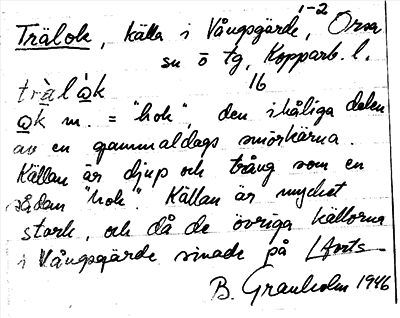 Trälok, källa i Vångsgärde, 1-2 Orsa
su ö tg, Kopparb. l.
16
tràlò̩k
o̩k m. = "hok", den ihåliga delen
av en gammaldags smörkärna.
Källan är djup och trång som en
sådan "hok". Källan är mycket
stark, och då de övriga källorna
i Vångsgärde sinade på
B. Granholm 1946